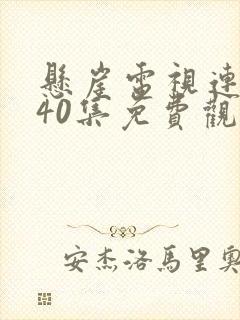 懸崖電視連
40集免費觀
安杰洛馬里奧